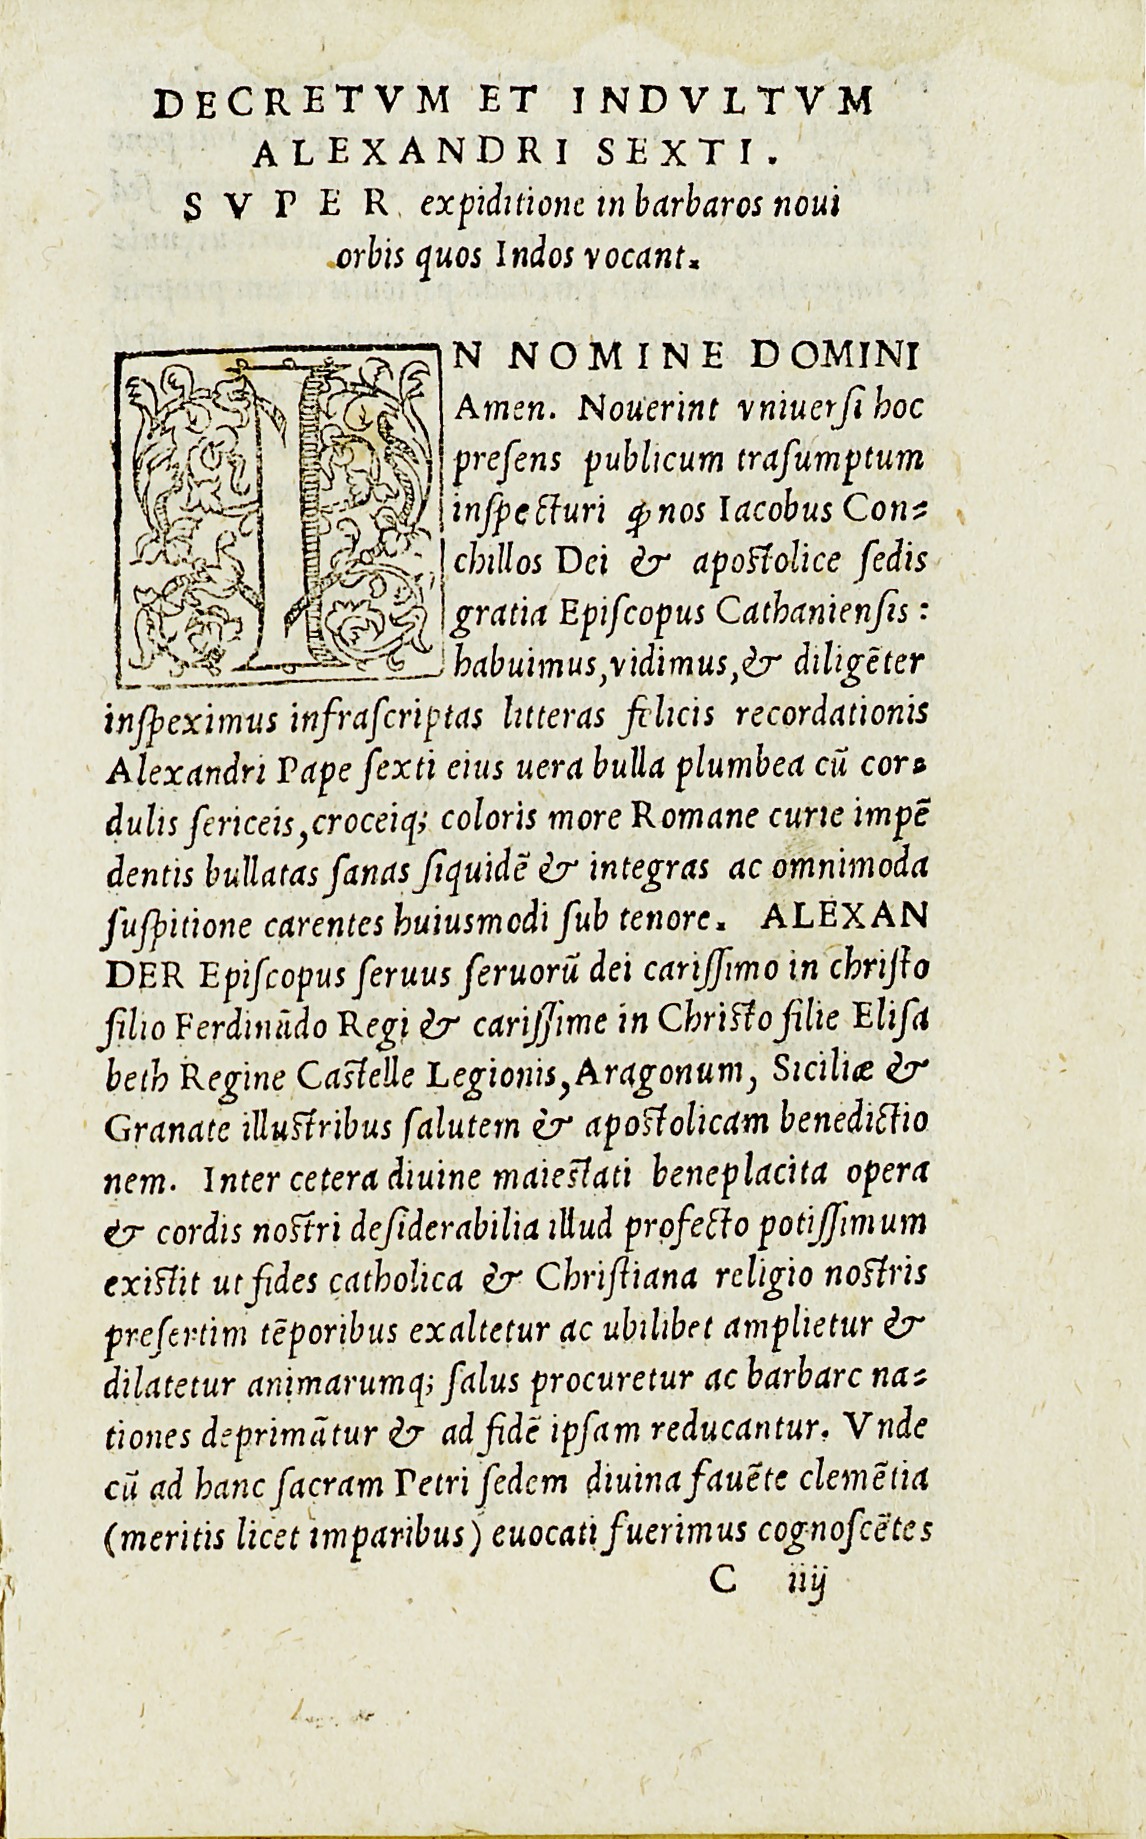 DECRETVM ET INDVLTVM
ALEXANDRI SEXTI.
SVPER expiditione in barbaros noui
orbis quos Indos vocant.
IN NOMINE DOMINI
Amen. Nouerint vniuerſi hoc
preſens publicum traſumptum
inſpecturi ꝙ nos Iacobus Con⸗
chillos Dei & apoſtolice ſedis
gratia Epiſcopus Cathanienſis :
habuimus, vidimus, & diligẽter
inſpeximus infraſcriptas litteras felicis recordationis
Alexandri Pape ſexti eius uera bulla plumbea cũ cor⸗
dulis ſericeis, croceiq; coloris more Romane curie impẽ
dentis bullatas ſanas ſiquidẽ & integras ac omnimoda
ſuſpitione carentes huiusmodi ſub tenore. ALEXAN
DER Epiſcopus ſeruus ſeruorũ dei cariſſimo in chriſto
filio Ferdinãdo Regi & cariſſime in Chriſto filie Eliſa
beth Regine Caſtelle Legionis, Aragonum, Siciliæ &
Granate illuſtribus ſalutem & apoſtolicam benedictio
nem. Inter cetera diuine maieſtati beneplacita opera
& cordis noſtri deſiderabilia illud profecto potiſſimum
exiſtit ut fides catholica & Chriſtiana religio noſtris
preſertim tẽporibus exaltetur ac ubilibet amplietur &
dilatetur animarumq; ſalus procuretur ac barbare na⸗
tiones deprimãtur & ad fidẽ ipſam reducantur. Vnde
cũ ad hanc ſacram Petri ſedem diuina fauẽte clemẽtia
(meritis licet imparibus) euocati fuerimus cognoſcẽtes
C iiij